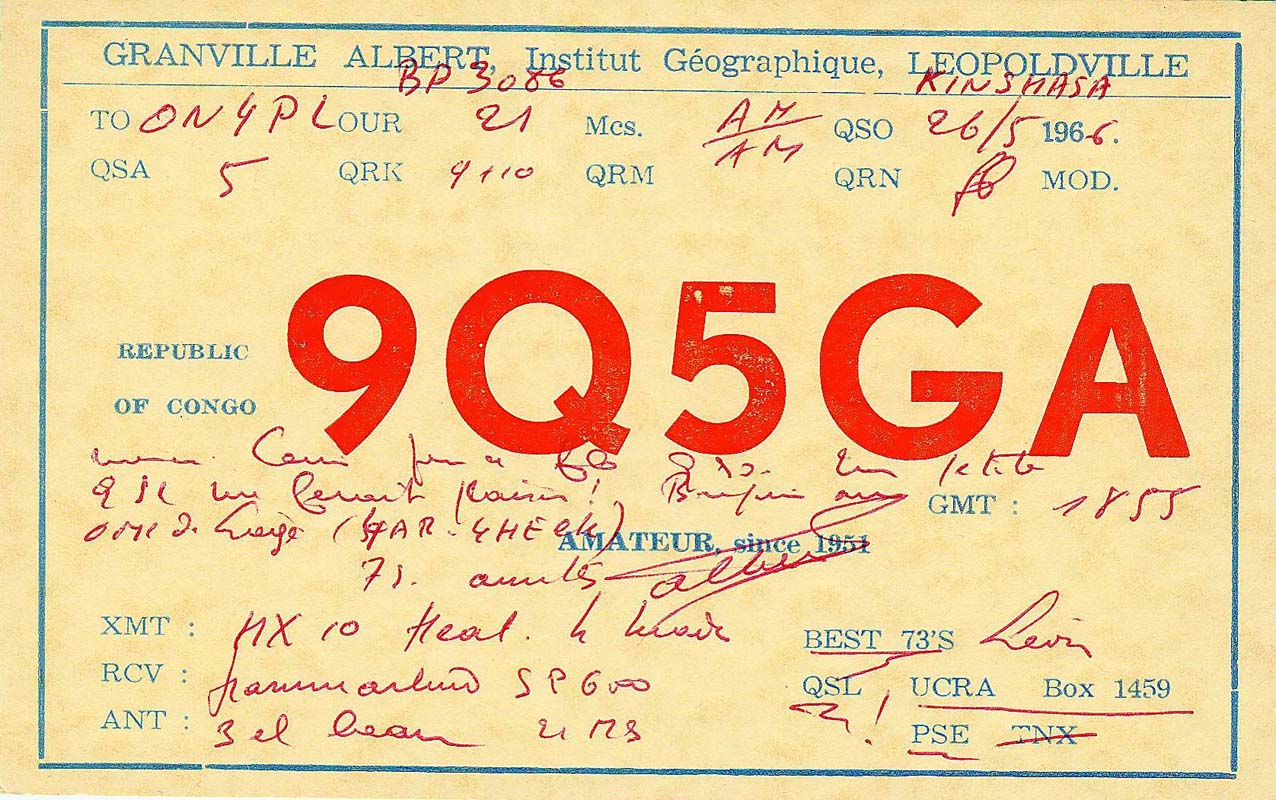 GRANVILLE ALBERT, Institut Géographique, LEOPOLDVILLE
BP 3086 KINSHASA
TO ON4PL OUR 21 Mcs. AM/AM QSO 26/5 1966.
QSA 5 QRK 9+10 QRM QRN fb MOD.
9Q5GA
REPUBLIC
OF CONGO
QSO. Un petite
QSL me ferait plaisir! Bonjour aux
GMT : 1855
OMs de Liège (4AR-4HEK)
AMATEUR, since 1951
73. amitiés Albert
XMT : HX 10 Heat.
RCV : Hammarlund SP 600
ANT : 3 el beam 21 MS
BEST 73'S
QSL UCRA Box 1459
PSE TNX